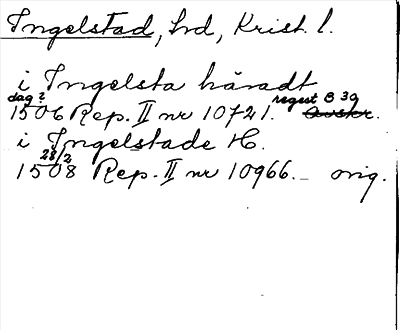 Ingelstad, hrd, Krist. l.
i Ingelsta häradt
dag? regest B 39
1506 Rep. II nr 10721. Avskr.
i Ingelstade H.
28/2
1508 Rep. II nr 10966. _ orig.